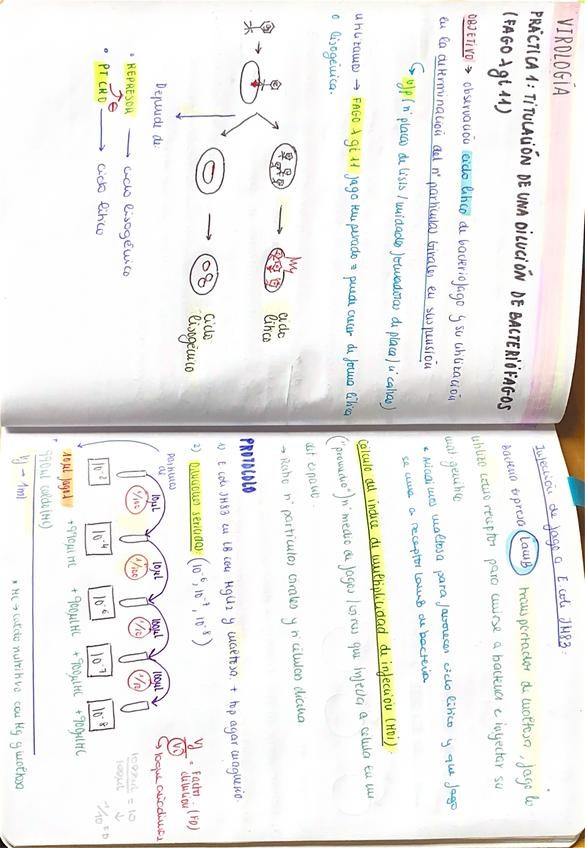 VIROLOGÍA
PRÁCTICA 1: TITULACIÓN DE UNA DILUCIÓN DE BACTERIÓFAGOS
(FAGO λ gt 11)
OBJETIVO → observación ciclo lítico de bacteriófago y su utilización
en la determinación del nº partículas virales en suspensión
ufp (nº placas de lisis / unidades formadoras de placa / nº calvas)
utilizamos → FAGO λ gt 11 fago temperado = puede crecer de forma lítica
o lisogénica.
ciclo
lítico
ciclo
lisogénico
Depende de:
• REPRESOR → ciclo lisogénico
⊖
• PT CRO → ciclo lítico
Infección de fago a E. coli JM83:
Bacteria expresa LamB transportador de maltosa, fago lo
utiliza como receptor para unirse a bacteria e inyectar su
mat. genético
* Añadimos maltosa para favorecer ciclo lítico y que fago
se una a receptor LamB de bacteria
Cálculo del índice de multiplicidad de infección (MOI):
("promedio") nº medio de fagos / virus que infecta a célula en un
→ Ratio nº partículas virales y nº células diana
PROTOCOLO
1) E. coli JM83 en LB con MgCl2 y maltosa + top agar magnesio
2) Diluciones seriadas: (10⁻⁶, 10⁻⁷, 10⁻⁸)
Partimos
de
10µL 10µL 10µL 10µL
1/100 1/100 1/10 1/10
10⁻² 10⁻⁴ 10⁻⁶ 10⁻⁷ 10⁻⁸
10µl fago
990µl caldo (MC)
+990µl MC +900µl MC +900µl MC
Vf → 1ml
Vf/Vi = Factor (FD)
dilución
→ lo que añadimos
1000µL/100µL = 10
↓
1/10 = FD
* MC → medio nutritivo con Mg y maltosa